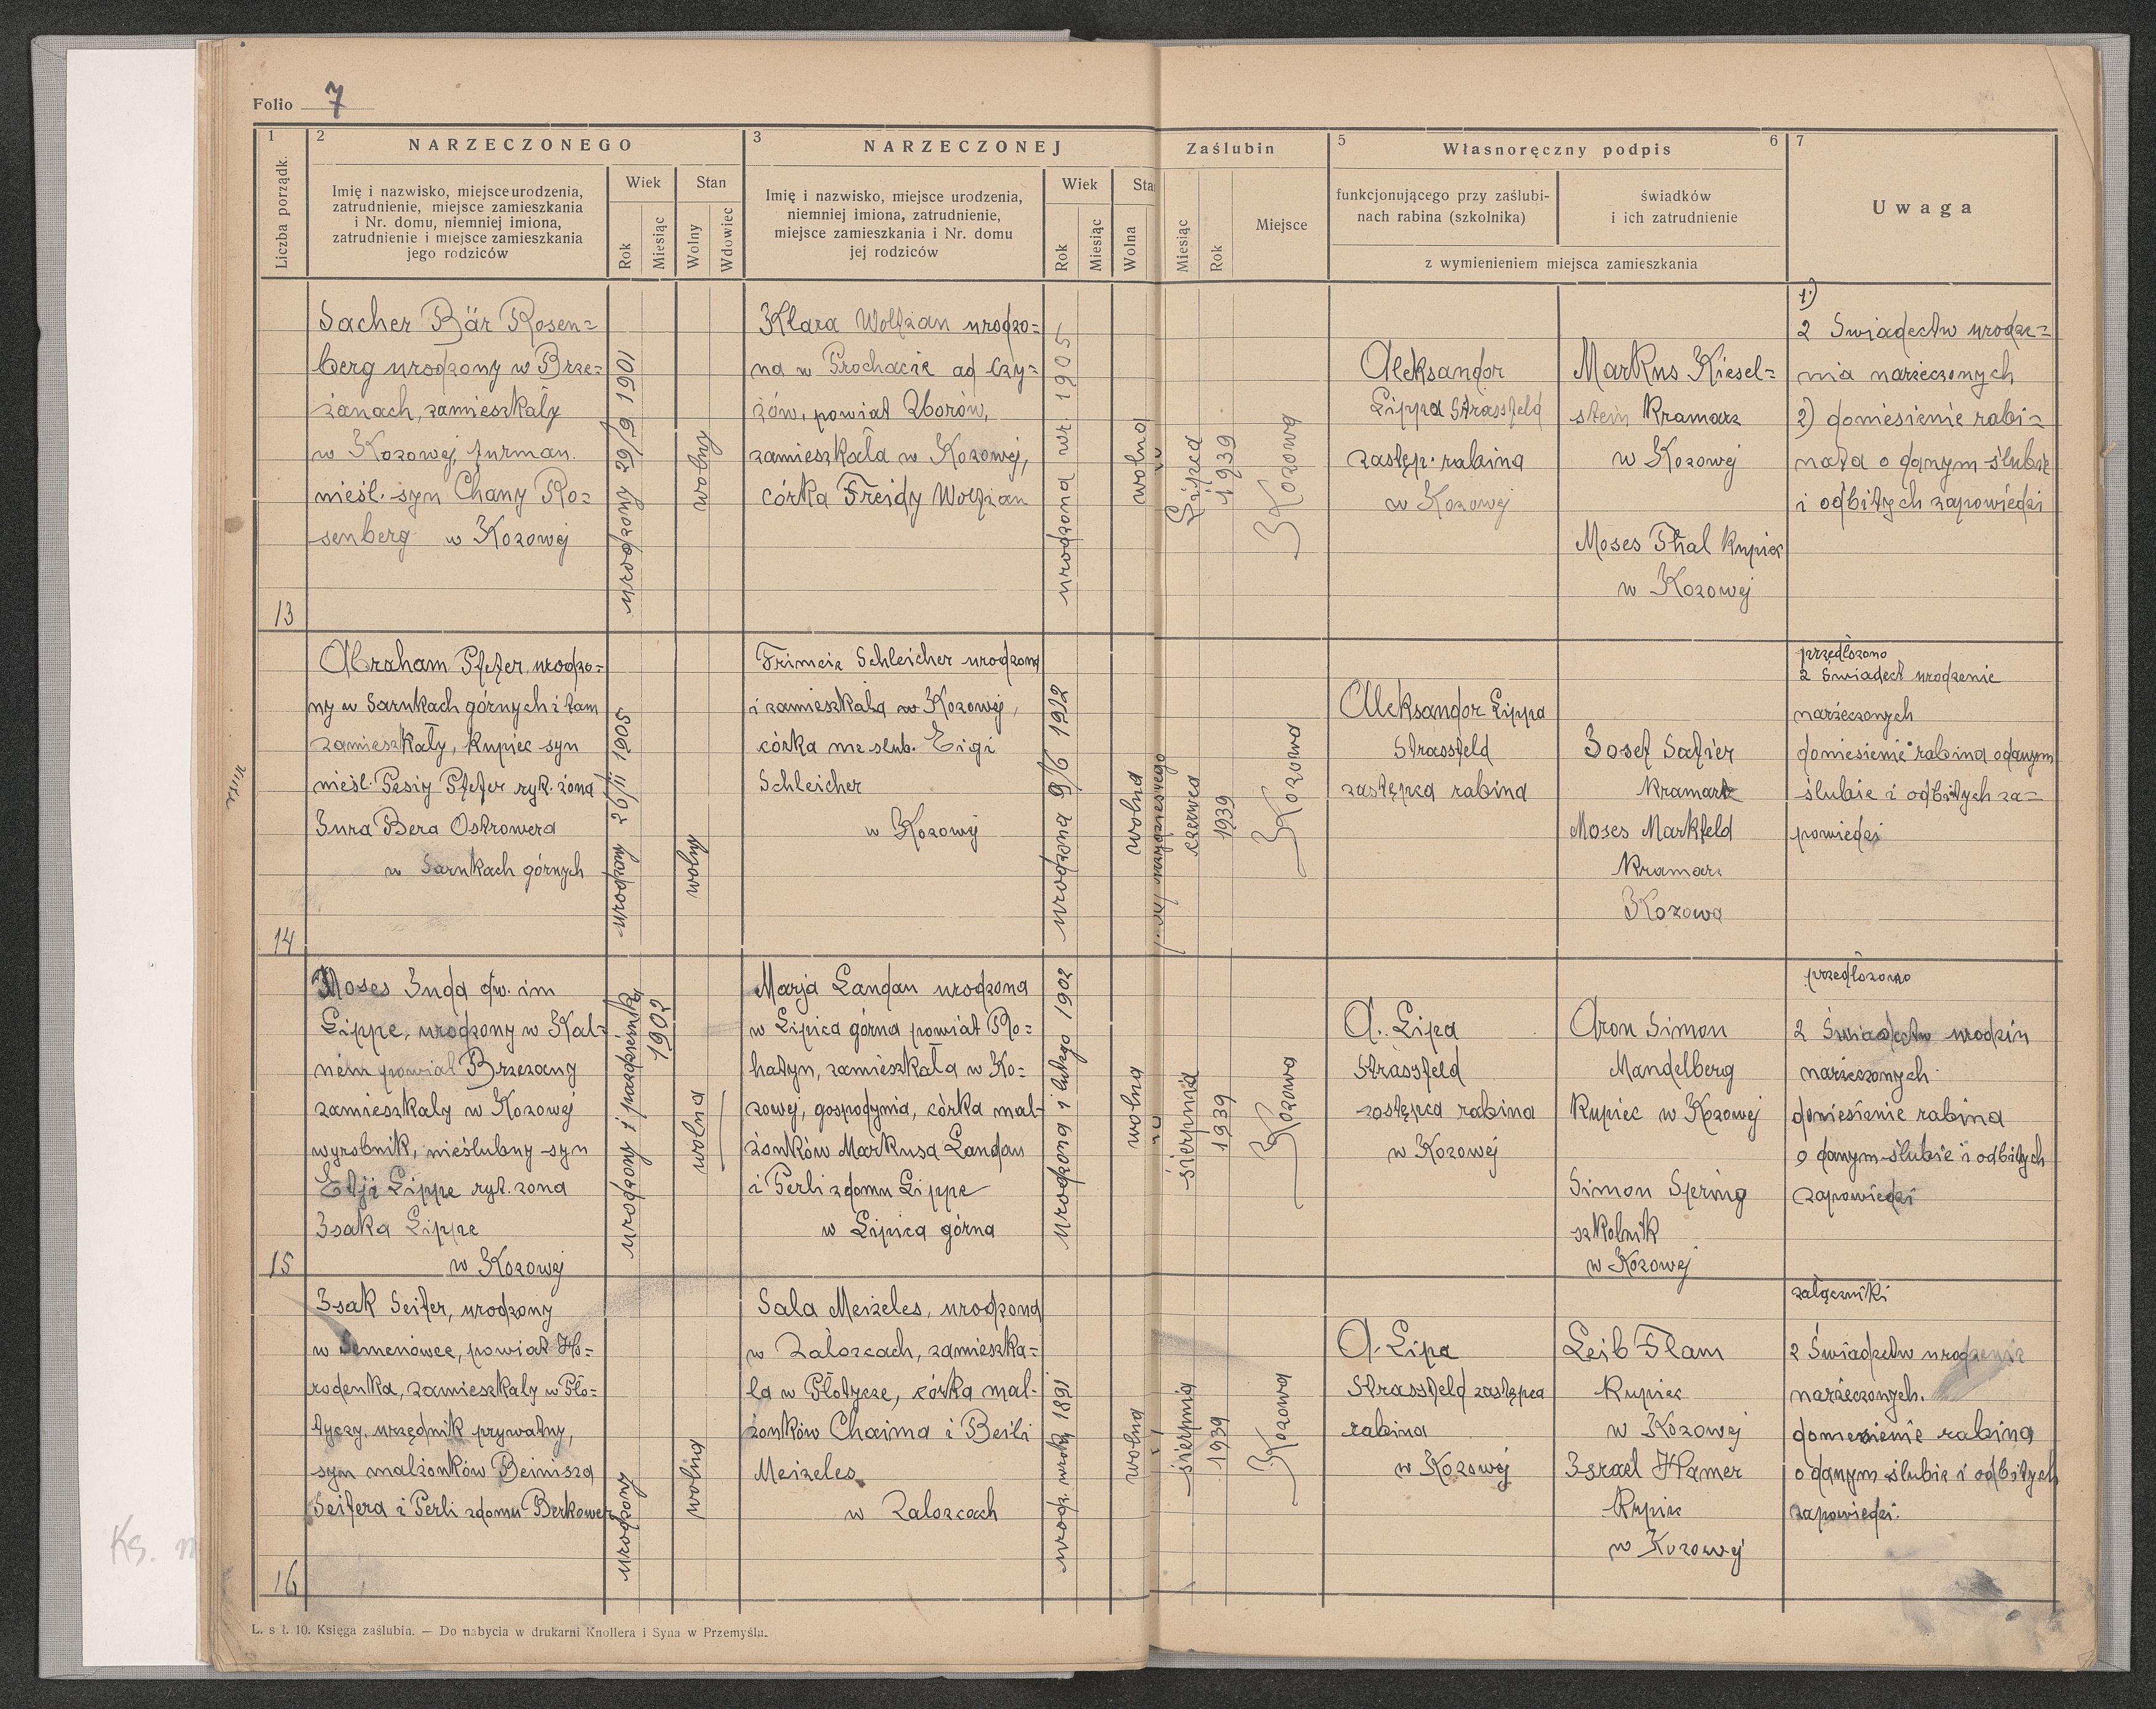 Folio 7
1
Liczba porządk.
2
NARZECZONEGO
Imię i nazwisko, miejsce urodzenia,
zatrudnienie, miejsce zamieszkania
i Nr. domu, niemniej imiona,
zatrudnienie i miejsce zamieszkania
jego rodziców
Wiek
Rok
Miesiąc
Stan
Wolny
Wdowiec
3
NARZECZONEJ
Imię i nazwisko, miejsce urodzenia,
niemniej imiona, zatrudnienie,
miejsce zamieszkania i Nr. domu
jej rodziców
Wiek
Rok
Miesiąc
Sta
Wolna
Zaślubin
Miesiąc
Rok
Miejsce
5
Własnoręczny podpis
6
funkcjonującego przy zaślubi-
nach rabina (szkolnika)
świadków
i ich zatrudnienie
z wymienieniem miejsca zamieszkania
7
Uwaga
13
Sacher Bär Rosen=
berg urodzony w Brze=
żanach, zamieszkały
w Kozowej, furman.
nieśl. syn Chany Ro=
senberg w Kozowej
urodzony 29/9 1901
wolny
Klara Wolfzan urodzo=
na w
zów, powiat Zborów,
zamieszkała w Kozowej,
córka Freidy Wolfzan
urodzona wr. 1905
wolna
Lipca
1939
Kozowa
Aleksandor
Lippa Strassfeld
zastęp. rabina
w Kozowej
Markus Kiesel=
stein Kramarz
w Kozowej
Moses Thal Kupiec
w Kozowej
1)
2 Świadectw urodze=
nia narzeczonych
2) doniesienie rabi=
nata o danym ślubie
i odbitych zapowiedzi
14
Abraham Pfefer, urodzo=
ny w Sarnkach górnych i tam
zamieszkały, Kupiec syn
nieśl. Pesiy Pfefer ryt. żona
Jura Bera Ostrowera
w Sarnkach górnych
urodzony 26/11 1905
wolny
Frimcie Schleicher urodzona
i zamieszkała w Kozowej,
córka nie slub. Eigi
Schleicher
w Kozowej
urodzona 9/6 1912
wolna
czerwca
1939
Kozowa
Aleksandor Lippa
Strassfeld
zastępca rabina
Josef Safier
Kramarz
Moses Markfeld
Kramarz
Kozowa
przedłożono
2 Świadect urodzenie
narzeczonych
doniesienie rabina o danym
ślubie i odbitych za=
powiedzi
15
Moses Juda dw. im
Lippe, urodzony w Kal=
nem powiat Brzezany
zamieszkaly w Kozowej
wyrobnik, nieślubny syn
Etji Lippe ryt. zona
Isaka Lippe
w Kozowej
urodzony 1 października
1902
wolna
Marja Landau urodzona
w Lipica górna powiat Ro=
hatyn, zamieszkała w Ko=
zowej, gospodynia, córka mał=
żonków Markusa Landau
i Perli zdomu Lippe
w Lipica górna
urodzona 1 lutego 1902
wolna
sierpnia
1939
Kozowa
A. Lipa
Strassfeld
zastępca rabina
w Kozowej
Aron Simon
Mandelberg
Kupiec w Kozowej
Simon Spering
szkolnik
w Kozowej
przedłożono
2 Świadectw urodzin
narzeczonych
doniesienie rabina
o danym ślubie i odbitych
zapowiedzi
16
Isak Seifer, urodzony
w Semenówce, powiat Ho=
rodenka, zamieszkaly w Pło=
tyczy, urzędnik prywatny,
syn malżonków Beinisza
Seifera i Perli zdomu Berkower
urodzony
wolna
Sala Meizeles, urodzona
w Załozcach, zamieszka=
ła w Płotycze, córka mał-
żonków Chaima i Beili
Meizeles
w Zalozcach
urodz. wroku 1891
wolna
sierpnia
1939
Kozowa
A. Lipa
Strassfeld zastępca
rabina
w Kozowej
Leib Flam
Kupiec
w Kozowej
Israel Hamer
Kupiec
w Kozowej
załączniki
2 Świadectw urodzenie
narzeczonych.
doniesienie rabina
o danym ślubie i odbitych
zapowiedzi.
L. s ł. 10. Księga zaślubin. — Do nabycia w drukarni Knollera i Syna w Przemyślu.
Ks.